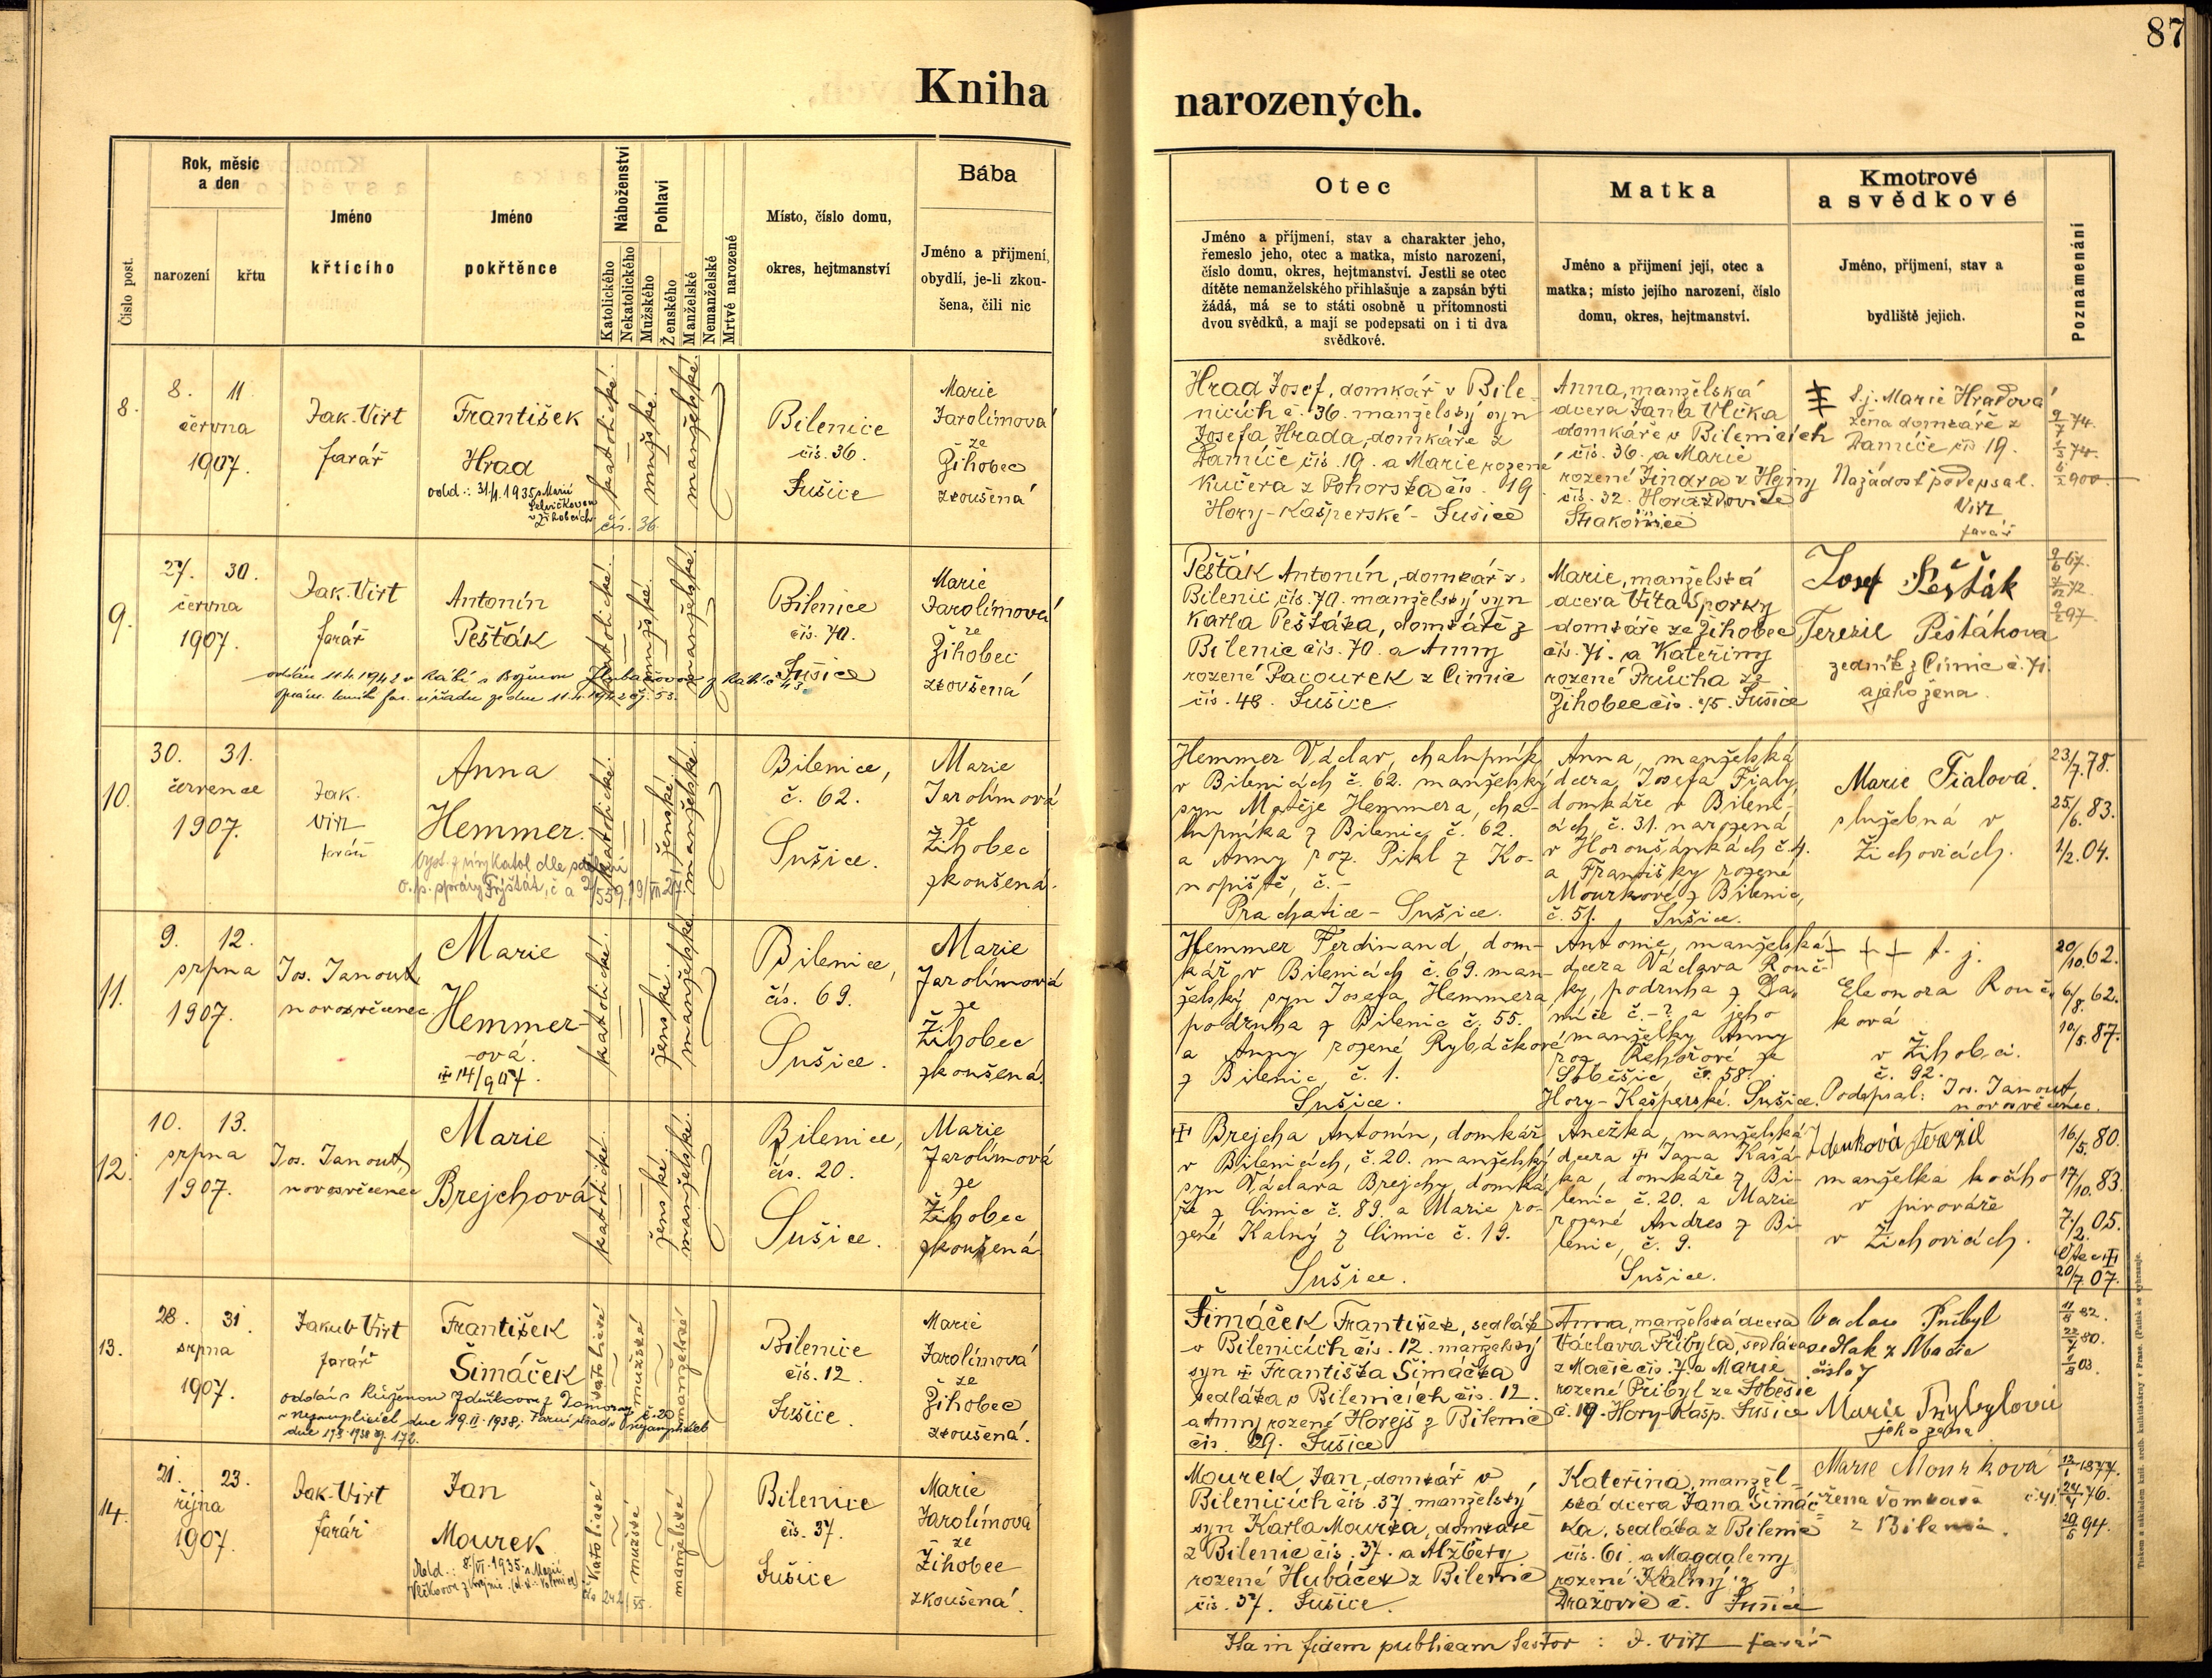 87
Kniha narozených.
Číslo post.
Rok, měsíc
a den
narození
křtu
Jméno
křtícího
Jméno
pokřtěnce
Náboženství
Katolického
Nekatolického
Pohlaví
Mužského
Ženského
Manželské
Nemanželské
Mrtvé narozené
Místo, číslo domu,
okres, hejtmanství
Bába
Jméno a přijmení,
obydlí, je-li zkou-
šena, čili nic
Otec
Jméno a příjmení, stav a charakter jeho,
řemeslo jeho, otec a matka, místo narození,
číslo domu, okres, hejtmanství. Jestli se otec
dítěte nemanželského přihlašuje a zapsán býti
žádá, má se to státi osobně u přítomnosti
dvou svědků, a mají se podepsati on i ti dva
svědkové.
Matka
Jméno a přijmení její, otec a
matka; místo jejího narození, číslo
domu, okres, hejtmanství.
Kmotrové
a svědkové
Jméno, příjmení, stav a
bydliště jejich.
Poznamenání
8.
8. 11.
června
1907.
Jak. Virt
farář
František
Hrad
odd.: 31/1. 1935 s Marií
v Žihobcích
katolické.
mužské.
manželské.
čís. 36.
Bilenice
čís. 36.
Sušice
Marie
Jarolímová
ze
Žihobec
zkoušená
Hrad Josef, domkář v Bile-
nicích č. 36. manželský syn
Josefa Hrada, domkáře z
Damíče čís. 19. a Marie rozené
Kučera z Pohorska čís. 19.
Hory-Kašperské - Sušice
Anna, manželská
dcera Jana Vlčka
domkáře v Bilenicích
čís. 36. a Marie
rozené Jindra v Hejny
čís. 32. Horažďovice
Strakonice
t.j. Marie Hradová
žena domkáře z
Damíče čís 19.
Na žádost podepsal.
Virt
farář
9/7 74.
9.
27. 30.
června
1907.
Jak. Virt
farář
Antonín
Pešťák
katolické.
mužské.
manželské.
Bilenice
čís. 70.
Sušice
Marie
Jarolímová
ze
Žihobec
zkoušená
oddán 11.4.1942 v Rábí s Boženou
Pešťák Antonín, domkář z
Bilenic čís. 70. manželský syn
Karla Pešťáka, domkáře z
Bilenic čís. 70. a Anny
rozené Pacourek z Čimic
čís. 48. Sušice.
Marie, manželská
dcera Víta Sporky
domkáře ze Žihobec
čís. 71. a Kateřiny
rozené Průcha ze
Žihobec čís. 45. Sušice
Josef Pešťák
Terezie Pešťáková
zedník z Čimic č. 71.
a jeho žena.
10.
30. 31.
července
1907.
Jak.
Virt
farář
Anna
Hemmer.
katolické.
ženské.
manželské.
Bilenice,
č. 62.
Sušice.
Marie
Jerolímová
ze
Žihobec
zkoušená.
Hemmer Václav, chalupník
v Bilenicích č. 62. manželský
syn Matěje Hemmera, cha-
lupníka z Bilenic č. 62.
a Anny roz. Pikl z Ko-
nopiště, č. -
Prachatice - Sušice.
Anna, manželská
dcera Josefa Fialy,
domkáře v Bileni-
cích, č. 31. narozená
v Horoušánkách č. 4.
a Františky rozené
Mourkové z Bilenic,
č. 51. Sušice.
Marie Fialová.
služebná v
Žichovicích.
23/7. 78.
25/6. 83.
1/2. 04.
11.
9. 12.
srpna
1907.
Jos. Janout,
novosvěcenec.
Marie
Hemmer-
ová.
14/9 07.
katolické.
ženské.
manželské.
Bilenice,
čís. 69.
Sušice.
Marie
Jarolímová
ze
Žihobec
zkoušená.
Hemmer Ferdinand, dom-
kář v Bilenicích č. 69. man-
želský syn Josefa Hemmera,
podruha z Bilenic č. 55.
a Anny rozené Rybáčkové
z Bilenic, č. 1.
Sušice.
Antonie, manželská
dcera Václava Rouč-
ky, podruha z Da-
míče č. -? a jeho
manželky Anny
roz. Řehořové ze
Soběšic, č. 58.
Hory-Kašperské. Sušice.
+ + + t. j.
Eleonora Rouč-
ková
v Žihobci.
č. 92.
Podepsal: Jos. Janout,
novosvěcenec.
20/10. 62.
6/8. 62.
10/5. 87.
12.
10. 13.
srpna
1907.
Jos. Janout,
novosvěcenec
Marie
Brejchová
katolické.
ženské.
manželské.
Bilenice,
čís. 20.
Sušice.
Marie
Jarolímová
ze
Žihobec
zkoušená.
Brejcha Antonín, domkář
v Bilenicích, č. 20. manželský
syn Václava Brejchy, domká-
ře z Čimic č. 89. a Marie ro-
zené Kalný z Čimic č. 19.
Sušice.
Anežka, manželská
dcera Jana Kašá-
ka, domkáře z Bi-
lenic č. 20. a Marie
rozené Andres z Bi-
lenic, č. 9.
Sušice.
Zdeňková Terezie
manželka kočího
v pivováře
v Žichovicích.
16/5. 80.
17/10. 83.
7/2. 05.
Otec
20/7. 07.
13.
28. 31.
srpna
1907.
Jakub Virt
farář
František
Šimáček
katolické
mužské
manželské
Bilenice
čís. 12.
Sušice.
Marie
Jarolímová
ze
Žihobec
zkoušená.
Šimáček František, sedlák
v Bilenicích čís. 12. manželský
syn Františka Šimáčka
sedláka v Bilenicích čís. 12.
a Anny rozené Horejš z Bilenic
čís. 29. Sušice
Anna, manželská dcera
Václava Přibyla, sedláka
z Mačic čís. 7. a Marie
rozené Přibyl ze Soběšic
č. 19. Hory-Kašp. Sušice
Vaclav Pribyl
sedlak z Mačic
číslo 7
Marie Prybylová
jeho žena
14.
21. 23.
října
1907.
Jak. Virt
farář
Jan
Mourek
katolické
mužské
manželské
Bilenice
čís. 37.
Sušice
Marie
Jarolímová
ze
Žihobec
zkoušená.
Mourek Jan, domkář v
Bilenicích čís. 37. manželský
syn Karla Mourka, domkáře
z Bilenic čís. 37. a Alžběty
rozené Hubáček z Bilenic
čís. 37. Sušice.
Kateřina, manžel-
ská dcera Jana Šimáč-
ka, sedláka z Bilenic
čís. 61. a Magdaleny
rozené Kalný z
Dražovic č. Sušice
Marie Mourková
žena domkaře č. 41
z Bilenic.
Ita in fidem publicam testor: J. Virt farář